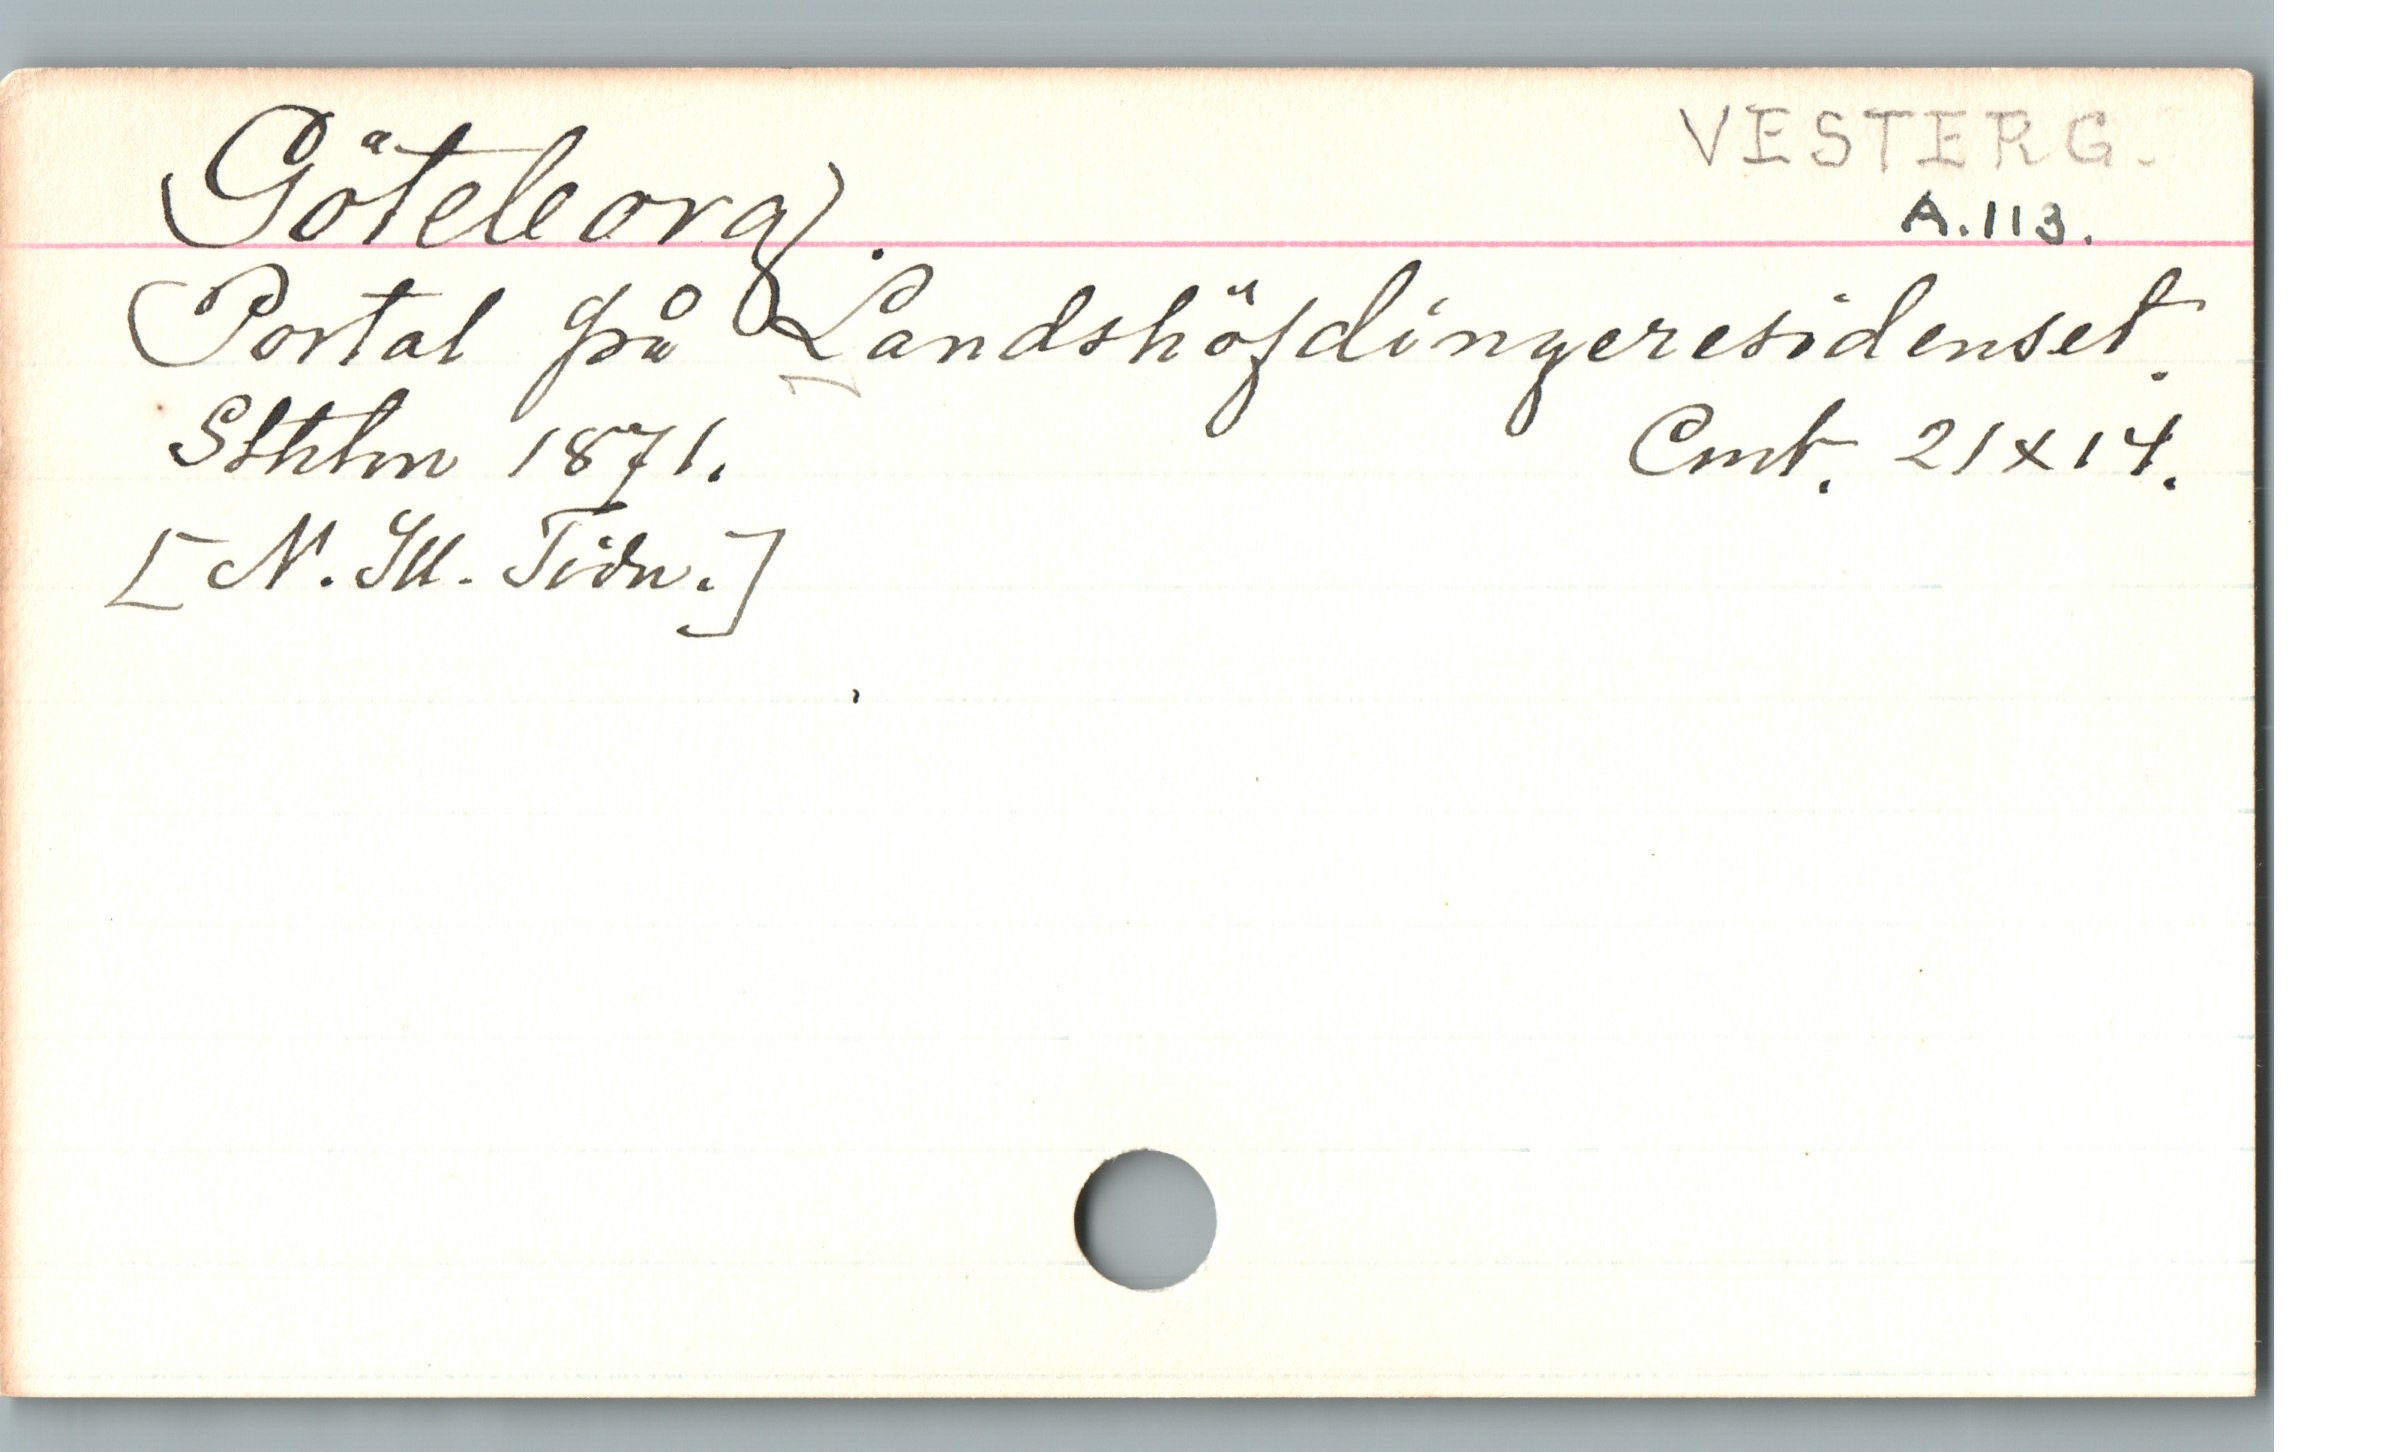 (Göteborg). VESTERG.
A.113.
Portal på Landshöfdingeresidenset.
Sthlm 1871. Cmt. 21x14.
[N. Ill. Tidn.]